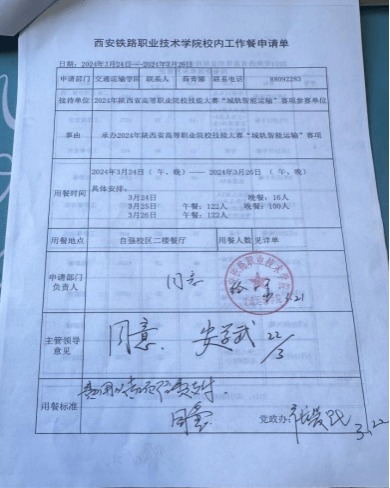 西安铁路职业技术学院校内工作餐申请单
日期：2024年3月24日——2024年3月26日
申请部门 交通运输学院 联系人 联系电话 88092283
接待单位 2024年陕西省高等职业院校技能大赛“城轨智能运输”赛项参赛单位
事由 承办2024年陕西省高等职业院校技能大赛“城轨智能运输”赛项
用餐时间 2024年3月24日（ 午、晚）—— 2024年3月26日 （ 午、晚）
具体安排：
3月24日 晚餐：16人
3月25日 午餐：122人 晚餐：100人
3月26日 午餐：122人
用餐地点 自强校区二楼餐厅 用餐人数 见详单
申请部门负责人 同意 3.21
主管领导意见 同意. 安学武 22/3
用餐标准 同意
党政办： 3.22